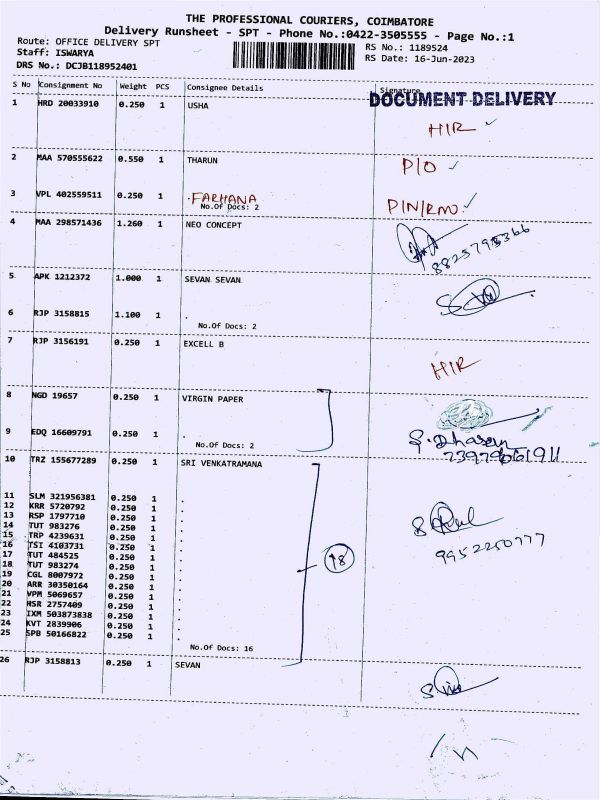 THE PROFESSIONAL COURIERS, COIMBATORE
Delivery Runsheet - SPT - Phone No.:0422-3505555 - Page No.:1
Route: OFFICE DELIVERY SPT
Staff: ISWARYA
DRS No.: DCJB118952401
RS No.: 1189524
RS Date: 16-Jun-2023
S No Consignment No Weight PCS Consignee Details Signature
DOCUMENT DELIVERY
1 HRD 20033910 0.250 1 USHA
HIR ✓
2 MAA 570555622 0.550 1 THARUN P/O ✓
3 VPL 402559511 0.250 1 . FARHANA PIN/RMO ✓
No.Of Docs: 2
4 MAA 298571436 1.260 1 NEO CONCEPT
8825795366
5 APK 1212372 1.000 1 SEVAN SEVAN
6 RJP 3158815 1.100 1 .
No.Of Docs: 2
7 RJP 3156191 0.250 1 EXCELL B
HIR
8 NGD 19657 0.250 1 VIRGIN PAPER
9 EDQ 16609791 0.250 1 .
No.Of Docs: 2
10 TRZ 155677289 0.250 1 SRI VENKATRAMANA
11 SLM 321956381 0.250 1 .
12 KRR 5720792 0.250 1 .
13 RSP 1797710 0.250 1 .
14 TUT 983276 0.250 1 .
15 TRP 4239631 0.250 1 .
16 TSI 4103731 0.250 1 .
17 TUT 484525 0.250 1 .
18 TUT 983274 0.250 1 .
19 CGL 8007972 0.250 1 .
20 ARR 30350164 0.250 1 .
21 VPM 5069657 0.250 1 .
22 HSR 2757409 0.250 1 .
23 IXM 503873838 0.250 1 .
24 KVT 2839906 0.250 1 .
25 SPB 50166822 0.250 1 .
18
9952250777
No.Of Docs: 16
26 RJP 3158813 0.250 1 SEVAN